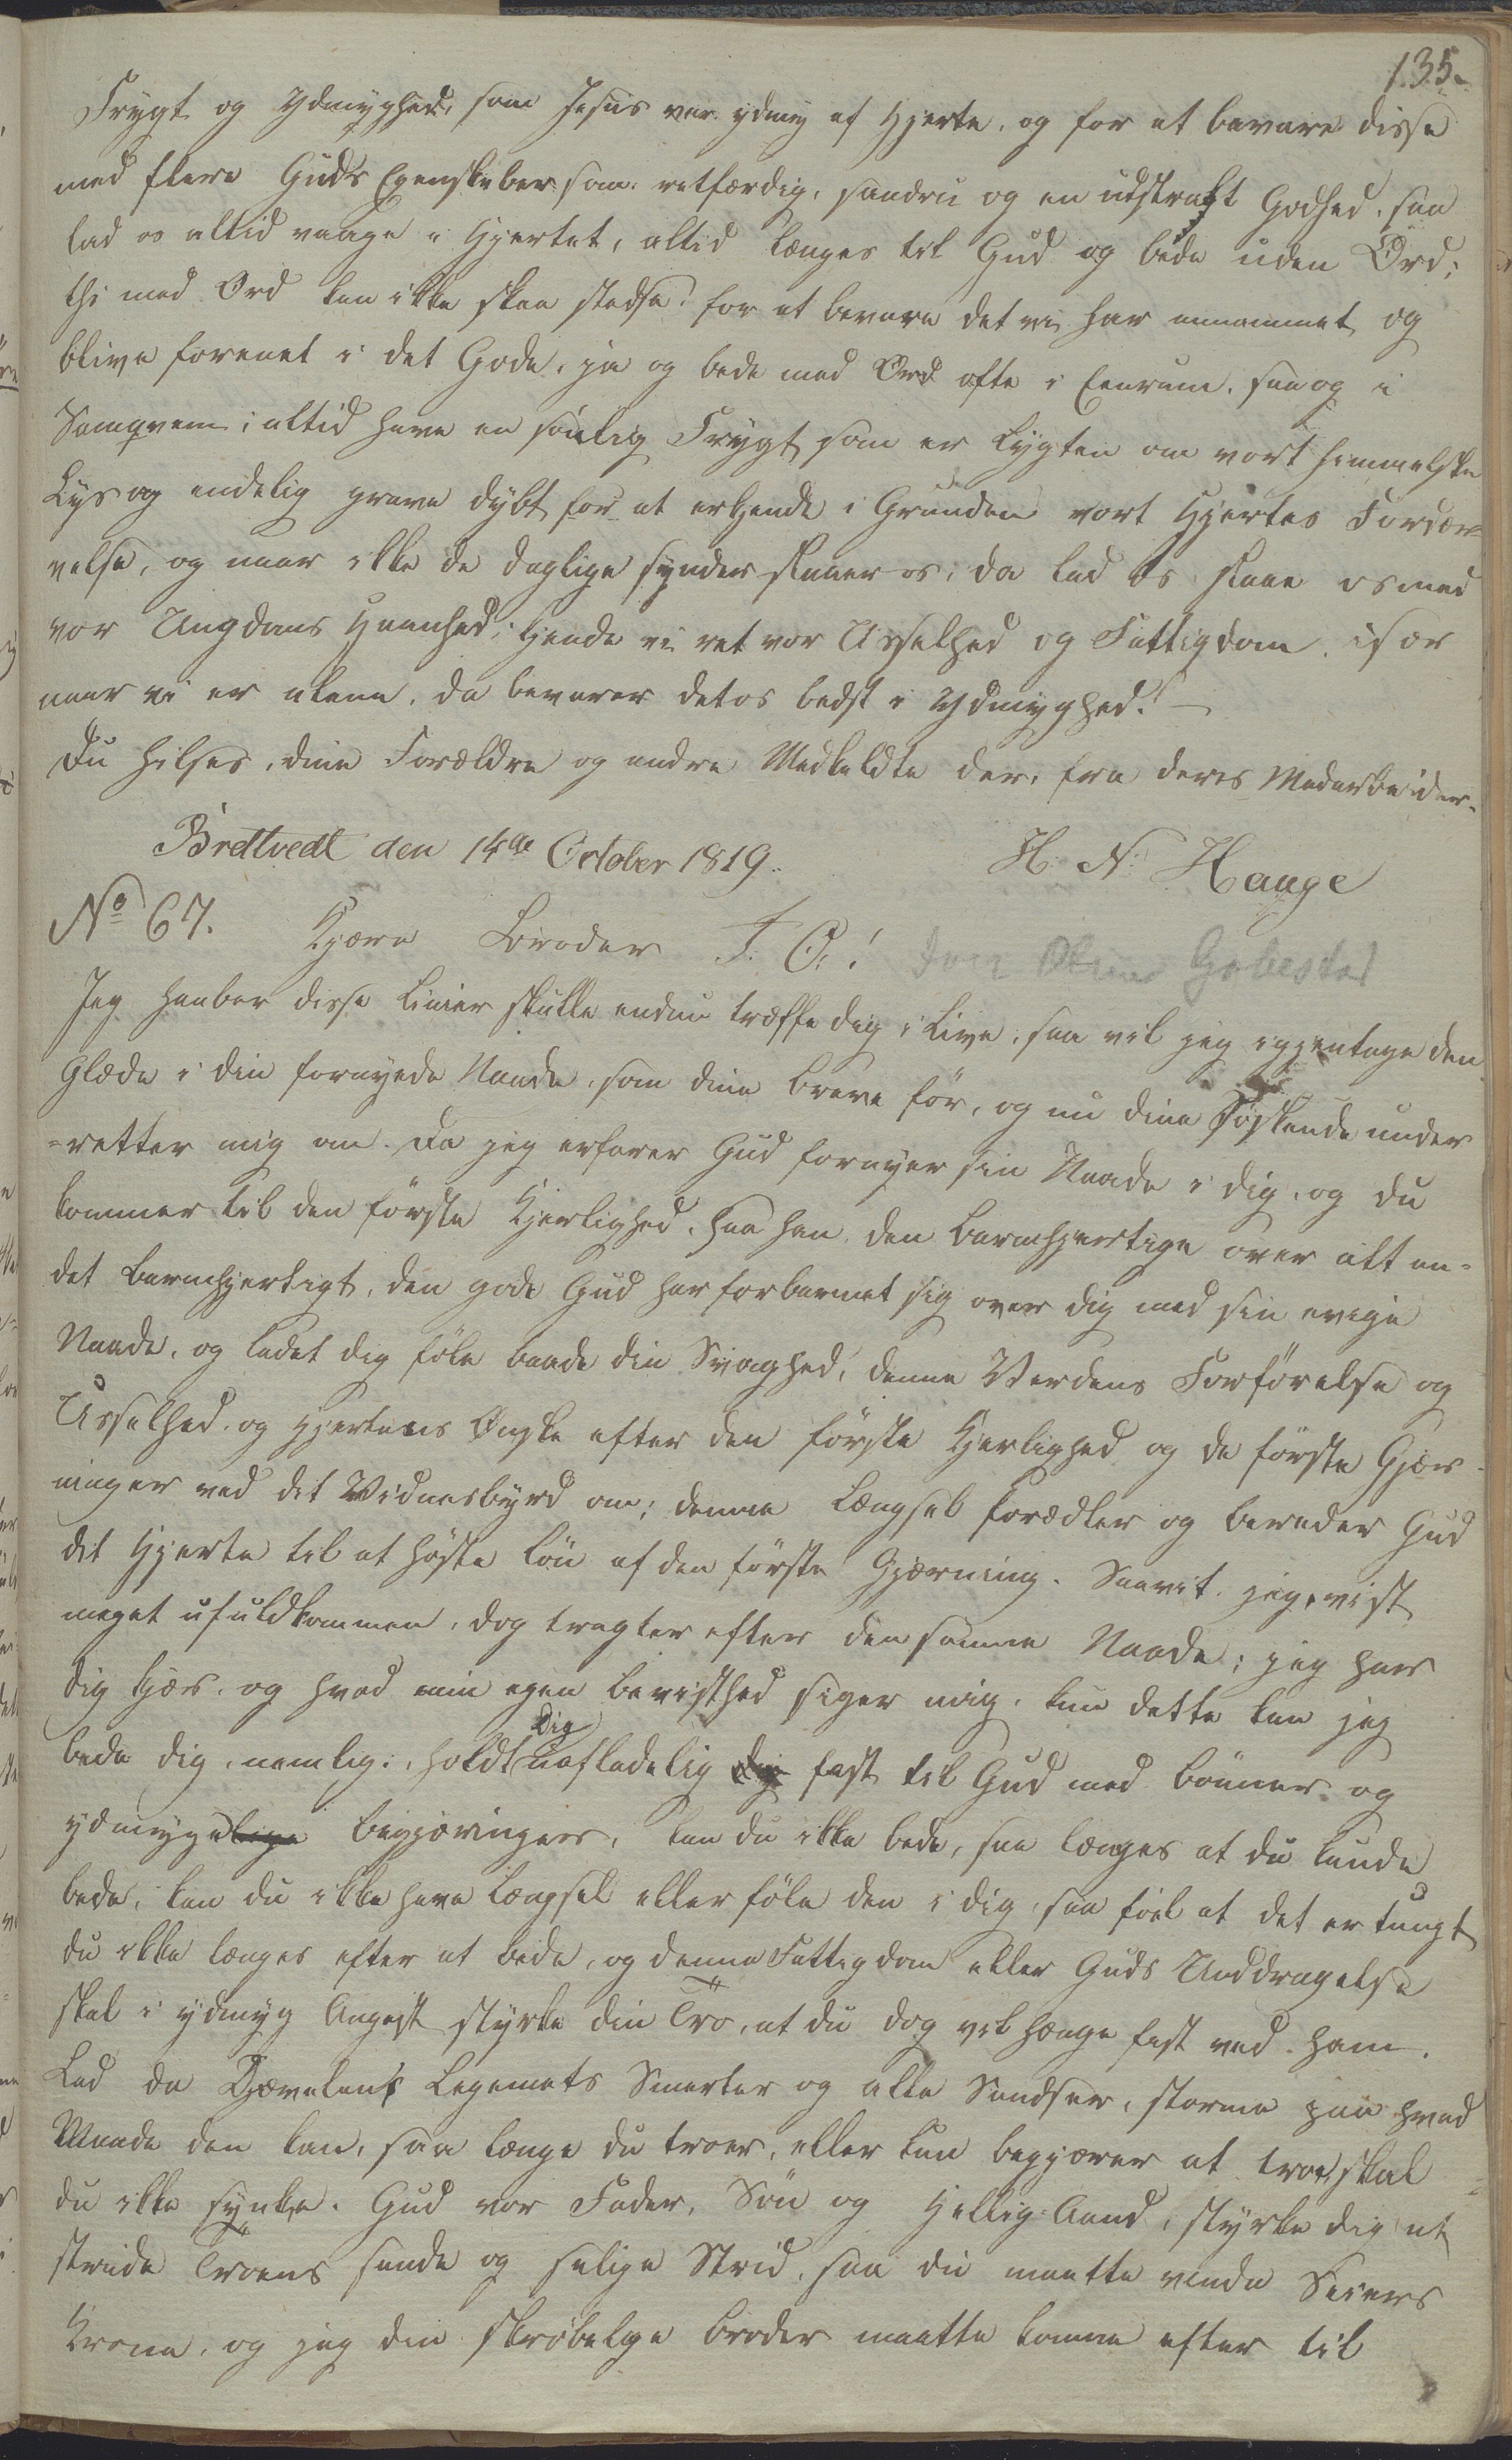 135.
Frygt og Ydmyghed, som Jesus var ydmyg af Hjerte, og for at bevare disse
med flere Guds Egenskeber som: retfærdig, sandru og en udstrakt Godhed, saa
lad os altid vaage i Hjertet, altid længes til Gud og bede uden Ord;
thi med Ord kan ikke skee stedse! for at bevare det vi har annammet og
blive forenet i det Gode, ja og bede med Ord ofte i Eenrum, saa og i
Samqvem; altid have en sönlig Frygt som er Lygten om vort himmelske
Lys og endelig grave dybt for at erkjende i Grunden vort Hjertes Fordær=
velse, og naar ikke de daglige synder slaaer os, da lad os slaae os med
vor Ungdoms Haanhed; kjende vi ret vor Usselhed og Fattigdom, især
naar vi er alene, da bevarer det os bedst i Ydmyghed! —
Du hilses, dine Forældre og andre Medkaldte der, fra deres Medarbeider.
Bredtvedt den 14de October 1819. H: N: Hauge
No 67. Kjære Broder J. O.!
Jeg haaber disse Linier skulle endnu træffe dig i Live, saa vil jeg igjentage den
Glæde i din fornyede Naade, som dine Breve før, og nu dine Søskende under
=retter mig om. Da jeg erfarer Gud fornyer sin Naade i dig, og du
kommer til den förste Kjerlighed, saa han den Barmhjertige over alt an=
det Barmhjertigt, den gode Gud har forbarmet sig over dig med sin evige
Naade, og ladet dig föle baade din Svaghed, denne Verdens Forförelse og
Usselhed og Hjertens Ønske efter den förste Kjerlighed og de förste Gjer=
ninger ved dit Vidnesbyrd om; denne Længsel forædler og bereder Gud
dit Hjerte til at høste Lön af den förste Gjerning. Saavit jeg, vist
meget ufuldkommen, dog tragter efter den samme Naade; jeg har
dig kjær, og hvad min egen Bevisthed siger mig, kun dette kan jeg
bede dig, nemlig: holdt Dig uafladelig dig fast til Gud med Bönner og
ydmygelige Begjæringer, kan du ikke bede, saa længes at du kunde
bede, kan du ikke have Længsel eller föle den i dig, saa föel at det er tungt
du ikke længes efter at bede, og denne Fattigdom eller Guds Unddragelse
skal i ydmyg Angest styrke din Tro, at du dog vil hænge fast ved ham.
Lad da Djævelens Legemets Smerter og alle Sandser, storme paa hvad
Maade den kan, saa længe du troer, eller kun begjærer at troe, skal
du ikke synke. Gud vor Fader, Sön og Hellig-Aand, styrke dig at
stride Troens sande og salige Strid, saa du maatte vinde Seiers
Krone, og jeg din skröbelge Broder maatte komme efter til